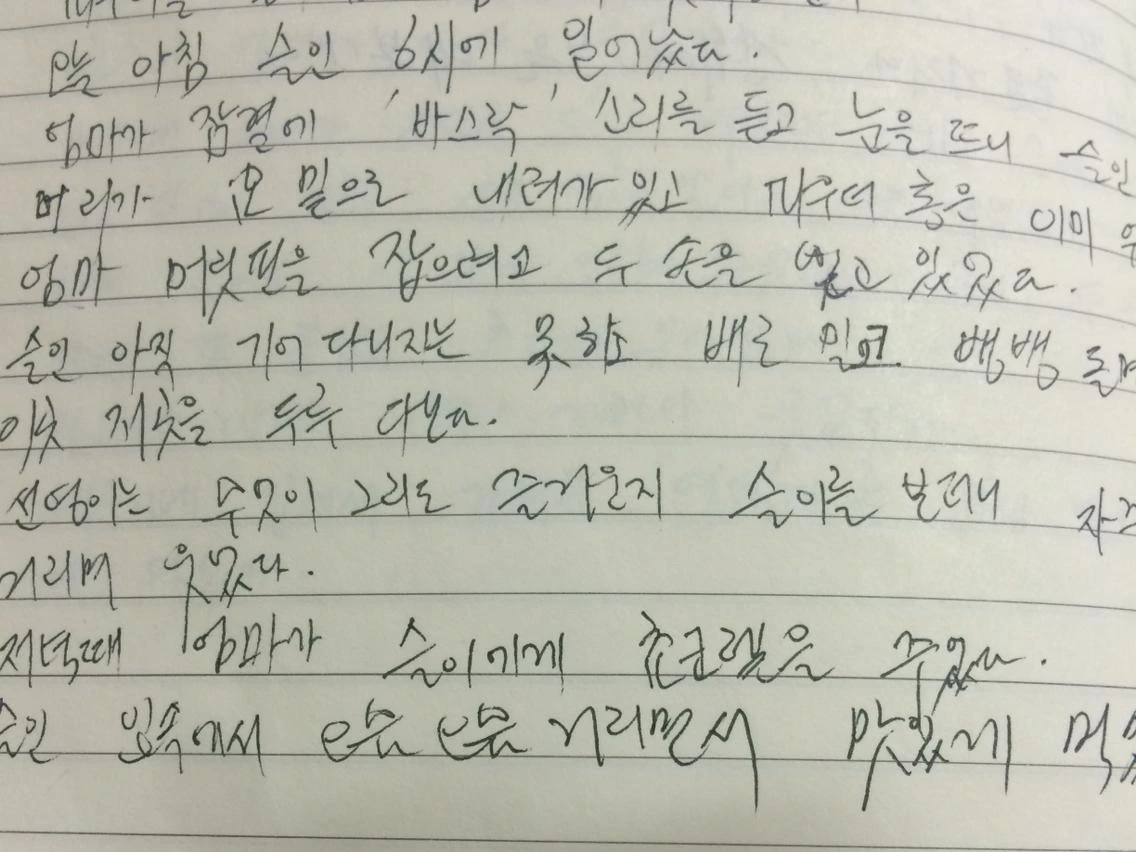 오늘 아침 슬인 6시에 일어났다.
엄마가 잠결에 '바스락' 소리를 듣고 눈을 뜨니 슬인
머리가 요 밑으로 내려가 있고 파우더 통은 이미
엄마 머릿핀을 잡으려고 두 손을 뻗고 있었다.
슬인 아직 기어 다니지는 못하고 배로 밀고 뱅뱅 돌며
이곳 저곳을 두루 다닌다.
선영이는 무엇이 그리도 즐거운지 슬이를 보더니
거리며 웃었다.
저녁때 엄마가 슬이에게 쵸코렡을 주었다.
슬인 입속에서 오물 오물 거리면서 맛있게